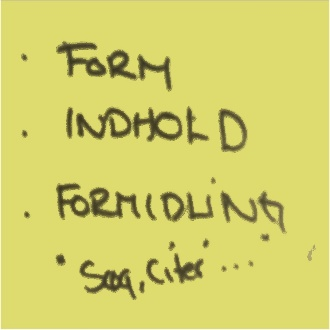 · FORM
· INDHOLD
· FORMIDLING
· Søg, Citér ...